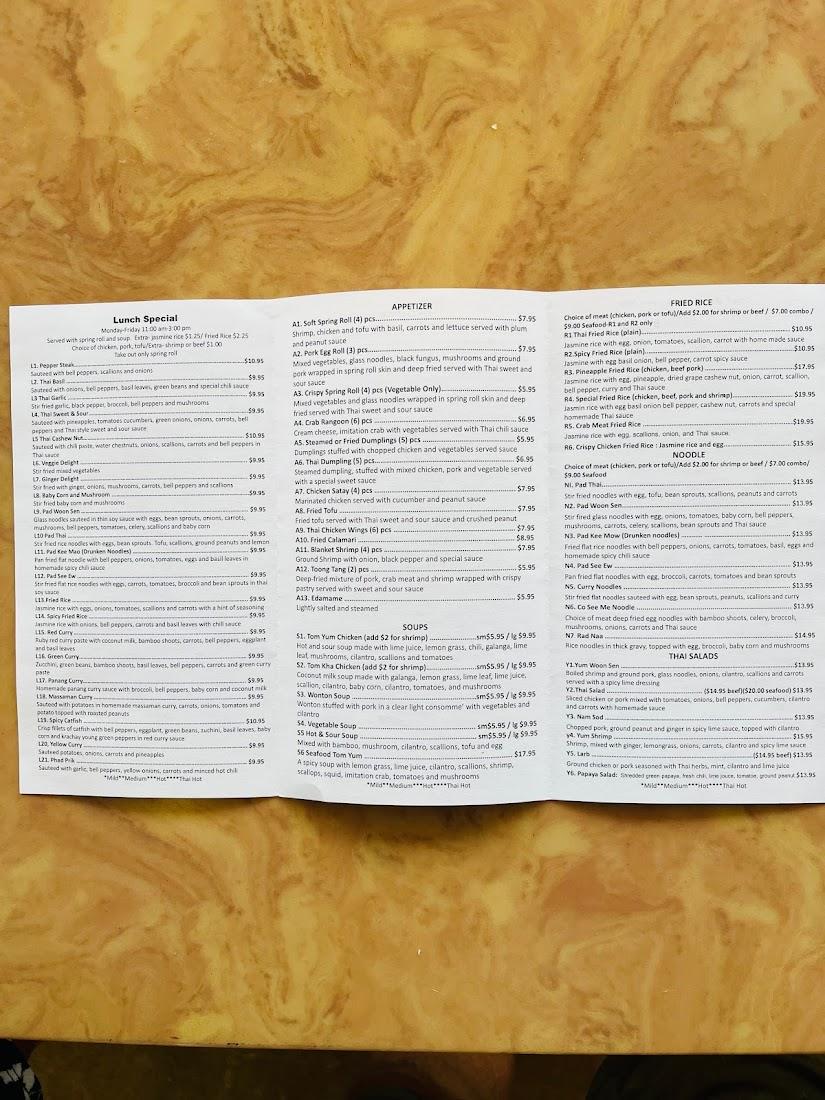 Lunch Special
Monday-Friday 11:00 am-3:00 pm
Served with spring roll and soup. Extra- jasmine rice $1.25/ Fried Rice $2.25
Choice of chicken, pork, tofu/Extra- shrimp or beef $1.00
Take out only spring roll
L1. Pepper Steak $10.95
Sauteed with bell peppers, scallions and onions
L2. Thai Basil $9.95
Sauteed with onions, bell peppers, basil leaves, green beans and special chili sauce
L3 Thai Garlic $9.95
Stir fried garlic, black pepper, broccoli, bell peppers and mushrooms
L4. Thai Sweet & Sour $9.95
Sauteed with pineapples, tomatoes cucumbers, green onions, onions, carrots, bell
peppers and Thai style sweet and sour sauce
L5 Thai Cashew Nut $10.95
Sauteed with chili paste, water chestnuts, onions, scallions, carrots and bell peppers in
Thai sauce
L6. Veggie Delight $9.95
Stir fried mixed vegetables
L7. Ginger Delight $9.95
Stir fried with ginger, onions, mushrooms, carrots, bell peppers and scallions
L8. Baby Corn and Mushroom $9.95
Stir fried baby corn and mushrooms
L9. Pad Woon Sen $9.95
Glass noodles sauteed in thin soy sauce with eggs, bean sprouts, onions, carrots,
mushrooms, bell peppers, tomatoes, celery, scallions and baby corn
L10 Pad Thai $9.95
Stir fried rice noodles with eggs, bean sprouts. Tofu, scallions, ground peanuts and lemon
L11. Pad Kee Mao (Drunken Noodles) $9.95
Pan fried flat noodle with bell peppers, onions, tomatoes, eggs and basil leaves in
homemade spicy chili sauce
L12. Pad See Ew $9.95
Stir fried flat rice noodles with eggs, carrots, tomatoes, broccoli and bean sprouts in thai
soy sauce
L13. Fried Rice $9.95
Jasmine rice with eggs, onions, tomatoes, scallions and carrots with a hint of seasoning
L14. Spicy Fried Rice $9.95
Jasmine rice with onions, bell peppers, carrots and basil leaves with chili sauce
L15. Red Curry $9.95
Ruby red curry paste with coconut milk, bamboo shoots, carrots, bell peppers, eggplant
and basil leaves
L16. Green Curry $9.95
Zucchini, green beans, bamboo shoots, basil leaves, bell peppers, carrots and green curry
paste
L17. Panang Curry $9.95
Homemade panang curry sauce with broccoli, bell peppers, baby corn and coconut milk
L18. Massaman Curry $9.95
Sauteed with potatoes in homemade massaman curry, carrots, onions, tomatoes and
potato topped with roasted peanuts
L19. Spicy Catfish $10.95
Crisp fillets of catfish with bell peppers, eggplant, green beans, zuchini, basil leaves, baby
corn and krachay young green peppers in red curry sauce
L20, Yellow Curry $9.95
Sauteed potatoes, onions, carrots and pineapples
L21. Phad Prik $9.95
Sauteed with garlic, bell peppers, yellow onions, carrots and minced hot chili
*Mild**Medium***Hot****Thai Hot
APPETIZER
A1. Soft Spring Roll (4) pcs $7.95
Shrimp, chicken and tofu with basil, carrots and lettuce served with plum
and peanut sauce
A2. Pork Egg Roll (3) pcs $7.95
Mixed vegetables, glass noodles, black fungus, mushrooms and ground
pork wrapped in spring roll skin and deep fried served with Thai sweet and
sour sauce
A3. Crispy Spring Roll (4) pcs (Vegetable Only) $5.95
Mixed vegetables and glass noodles wrapped in spring roll skin and deep
fried served with Thai sweet and sour sauce
A4. Crab Rangoon (6) pcs $6.95
Cream cheese, imitation crab with vegetables served with Thai chili sauce
A5. Steamed or Fried Dumplings (5) pcs $5.95
Dumplings stuffed with chopped chicken and vegetables served sauce
A6. Thai Dumpling (5) pcs $6.95
Steamed dumpling, stuffed with mixed chicken, pork and vegetable served
with a special sweet sauce
A7. Chicken Satay (4) pcs $7.95
Marinated chicken served with cucumber and peanut sauce
A8. Fried Tofu $7.95
Fried tofu served with Thai sweet and sour sauce and crushed peanut
A9. Thai Chicken Wings (6) pcs $7.95
A10. Fried Calamari $8.95
A11. Blanket Shrimp (4) pcs $7.95
Ground Shrimp with onion, black pepper and special sauce
A12. Toong Tang (2) pcs $5.95
Deep-fried mixture of pork, crab meat and shrimp wrapped with crispy
pastry served with sweet and sour sauce
A13. Edamame $5.95
Lightly salted and steamed
SOUPS
S1. Tom Yum Chicken (add $2 for shrimp) sm$5.95 / lg $9.95
Hot and sour soup made with lime juice, lemon grass, chili, galanga, lime
leaf, mushrooms, cilantro, scallions and tomatoes
S2. Tom Kha Chicken (add $2 for shrimp) sm$5.95 / lg $9.95
Coconut milk soup made with galanga, lemon grass, lime leaf, lime juice,
scallion, cilantro, baby corn, cilantro, tomatoes, and mushrooms
S3. Wonton Soup sm$5.95 / lg $9.95
Wonton stuffed with pork in a clear light consomme' with vegetables and
cilantro
S4. Vegetable Soup sm$5.95 / lg $9.95
S5 Hot & Sour Soup sm$5.95 / lg $9.95
Mixed with bamboo, mushroom, cilantro, scallions, tofu and egg
S6 Seafood Tom Yum $17.95
A spicy soup with lemon grass, lime juice, cilantro, scallions, shrimp,
scallops, squid, imitation crab, tomatoes and mushrooms
*Mild**Medium***Hot****Thai Hot
FRIED RICE
Choice of meat (chicken, pork or tofu)/Add $2.00 for shrimp or beef / $7.00 combo /
$9.00 Seafood-R1 and R2 only
R1 Thai Fried Rice (plain) $10.95
Jasmine rice with egg, onion, tomatoes, scallion, carrot with home made sauce
R2.Spicy Fried Rice (plain) $10.95
Jasmine with egg basil onion, bell pepper, carrot spicy sauce
R3. Pineapple Fried Rice (chicken, beef pork) $17.95
Jasmine rice with egg, pineapple, dried grape cashew nut, onion, carrot, scallion,
bell pepper, curry and Thai sauce
R4. Special Fried Rice (chicken, beef, pork and shrimp) $19.95
Jasmin rice with egg basil onion bell pepper, cashew nut, carrots and special
homemade Thai sauce
R5. Crab Meat Fried Rice $19.95
Jasmine rice with egg, scallions, onion, and Thai sauce.
R6. Crispy Chicken Fried Rice : Jasmine rice and egg $15.95
NOODLE
Choice of meat (chicken, pork or tofu)/Add $2.00 for shrimp or beef / $7.00 combo/
$9.00 Seafood
N1. Pad Thai $13.95
Stir fried noodles with egg, tofu, bean sprouts, scallions, peanuts and carrots
N2. Pad Woon Sen $13.95
Stir fried glass noodles with egg, onions, tomatoes, baby corn, bell peppers,
mushrooms, carrots, celery, scallions, bean sprouts and Thai sauce
N3. Pad Kee Mow (Drunken noodles) $13.95
Fried flat rice noodles with bell peppers, onions, carrots, tomatoes, basil, eggs and
homemade spicy chili sauce
N4. Pad See Ew $13.95
Pan fried flat noodles with egg, broccoli, carrots, tomatoes and bean sprouts
N5. Curry Noodles $13.95
Stir fried flat noodles sauteed with egg, bean sprouts, peanuts, scallions and curry
N6. Co See Me Noodle $13.95
Choice of meat deep fried egg noodles with bamboo shoots, celery, broccoli,
mushrooms, onions, carrots and Thai sauce
N7. Rad Naa $14.95
Rice noodles in thick gravy, topped with egg, broccoli, baby corn and mushrooms
THAI SALADS
Y1.Yum Woon Sen $13.95
Boiled shrimp and ground pork, glass noodles, onions, cilantro, scallions and carrots
served with a spicy lime dressing
Y2.Thai Salad ($14.95 beef)($20.00 seafood) $13.95
Sliced chicken or pork mixed with tomatoes, onions, bell peppers, cucumbers, cilantro
and carrots with homemade sauce
Y3. Nam Sod $13.95
Chopped pork, ground peanut and ginger in spicy lime sauce, topped with cilantro
y4. Yum Shrimp $15.95
Shrimp, mixed with ginger, lemongrass, onions, carrots, cilantro and spicy lime sauce
Y5. Larb ($14.95 beef) $13.95
Ground chicken or pork seasoned with Thai herbs, mint, cilantro and lime juice
Y6. Papaya Salad: Shredded green papaya, fresh chili, lime juice, tomatoe, ground peanut $13.95
*Mild**Medium***Hot****Thai Hot